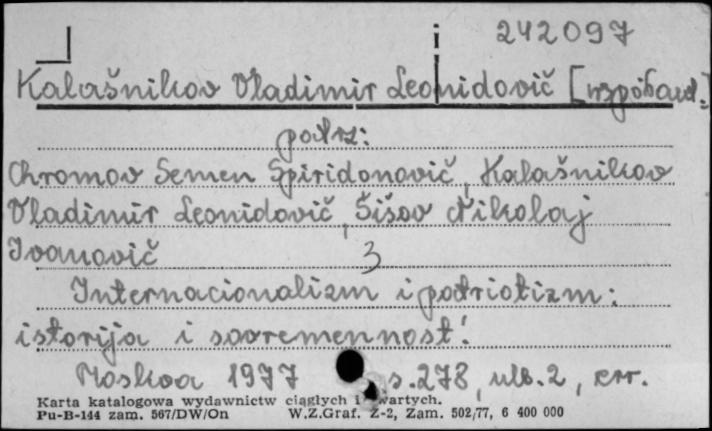 242097
Kalašnikov Vladimir Leonidovič [współaut.]
patrz:
Chromov Semen Spiridonovič, Kalašnikov
Vladimir Leonidovič, Šišov Nikolaj
Ivanovič 3
Internacionalizm i patriotizm:
istorija i sovremennost'.
Moskva 1977 s. 278, nlb. 2, err.
Karta katalogowa wydawnictw ciągłych i zwartych.
Pu-B-144 zam. 567/DW/On W.Z.Graf. Z-2, Zam. 502/77, 6 400 000